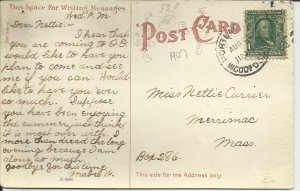 This Space For Writing Messages
Wed. P.M
Dear Nettie:-
I hear that
you are coming to O.D.
would like to have you
plan to come and see
me if you can. Would
like to have you ever
so much. Suppose
you have been enjoying
the summer, just think
it is most over with. I
more than dread the long
evening because I am
alone so much.
goodbye for this time
Mabel H.
POST CARD
1907
AUG
WOODFORDS
Miss Nettie Currier
Merrimac
Mass.
Box 286.
This side for the Address only.